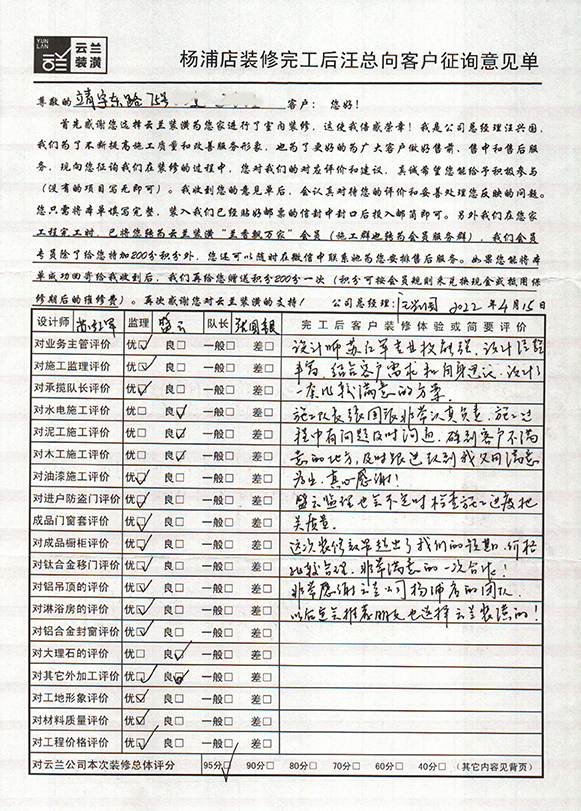 YUN LAN 云兰装潢
杨浦店装修完工后汪总向客户征询意见单
尊敬的 靖宇东路75号 客户：您好！
首先感谢您选择云兰装潢为您家进行了室内装修，这使我倍感荣幸！我是公司总经理汪兴国，
我们为了不断提高施工质量和改善服务形象，也为了更好的为广大客户做好售前、售中和售后服
务，现向您征询我们在装修的过程中，您对我们的对应评价和建议，真诚希望您能给予积极参与
（没有的项目写无即可）。我收到您的意见单后，会认真对待您的评价和妥善处理您反映的问题。
您只需将本单填写完整，装入我们已经贴好邮票的信封中封口后投入邮筒即可。另外我们在您家
工程完工时，已将您转为云兰装潢“兰香飘万家”会员（施工群也转为会员服务群），我们会员
专员除了给您特加200分积分外，您还可以随时在微信中联系她为您安排售后服务。如果您能将本
单成功回寄给我收到后，我们再给您赠送积分200分一次（积分可按会员规则来兑换现金或抵用保
修期后的维修费）。再次感谢您对云兰装潢的支持！ 公司总经理：汪兴国 2022年4月15日
设计师 苏红军 监理 盛云 队长 张国银 完工后客户装修体验或简要评价
对业务主管评价 优☑ 良□ 一般□ 差□
对施工监理评价 优☑ 良□ 一般□ 差□
对承揽队长评价 优☑ 良□ 一般□ 差□
对水电施工评价 优□ 良☑ 一般□ 差□
对泥工施工评价 优□ 良☑ 一般□ 差□
对木工施工评价 优□ 良☑ 一般□ 差□
对油漆施工评价 优☑ 良□ 一般□ 差□
对进户防盗门评价 优☑ 良□ 一般□ 差□
成品门窗套评价 优☑ 良□ 一般□ 差□
对成品橱柜评价 优☑ 良□ 一般□ 差□
对钛合金移门评价 优☑ 良□ 一般□ 差□
对铝吊顶的评价 优☑ 良□ 一般□ 差□
对淋浴房的评价 优☑ 良□ 一般□ 差□
对铝合金封窗评价 优☑ 良□ 一般□ 差□
对大理石的评价 优□ 良☑ 一般□ 差□
对其它外加工评价 优☑ 良☑ 一般□ 差□
对工地形象评价 优☑ 良□ 一般□ 差□
对材料质量评价 优☑ 良□ 一般□ 差□
对工程价格评价 优☑ 良□ 一般□ 差□
设计师苏红军专业技能强、设计经验
丰富，结合客户需求和自身建议，设计了
一套比较满意的方案。
施工队长张国银非常认真负责，施工过
程中有问题及时沟通，碰到客户不满
意的地方，及时跟进直到我们满意
为止，真心感谢！
盛云监理也会不定时检查施工进度把
关质量。
这次装修效果超出了我们的预期，价格
比较合理，非常满意的一次合作！
非常感谢云兰公司杨浦店的团队，
以后也会推荐朋友也选择云兰装潢的！
对云兰公司本次装修总体评分 95分☑ 90分□ 80分□ 70分□ 60分□ 40分□ （其它内容见背页）